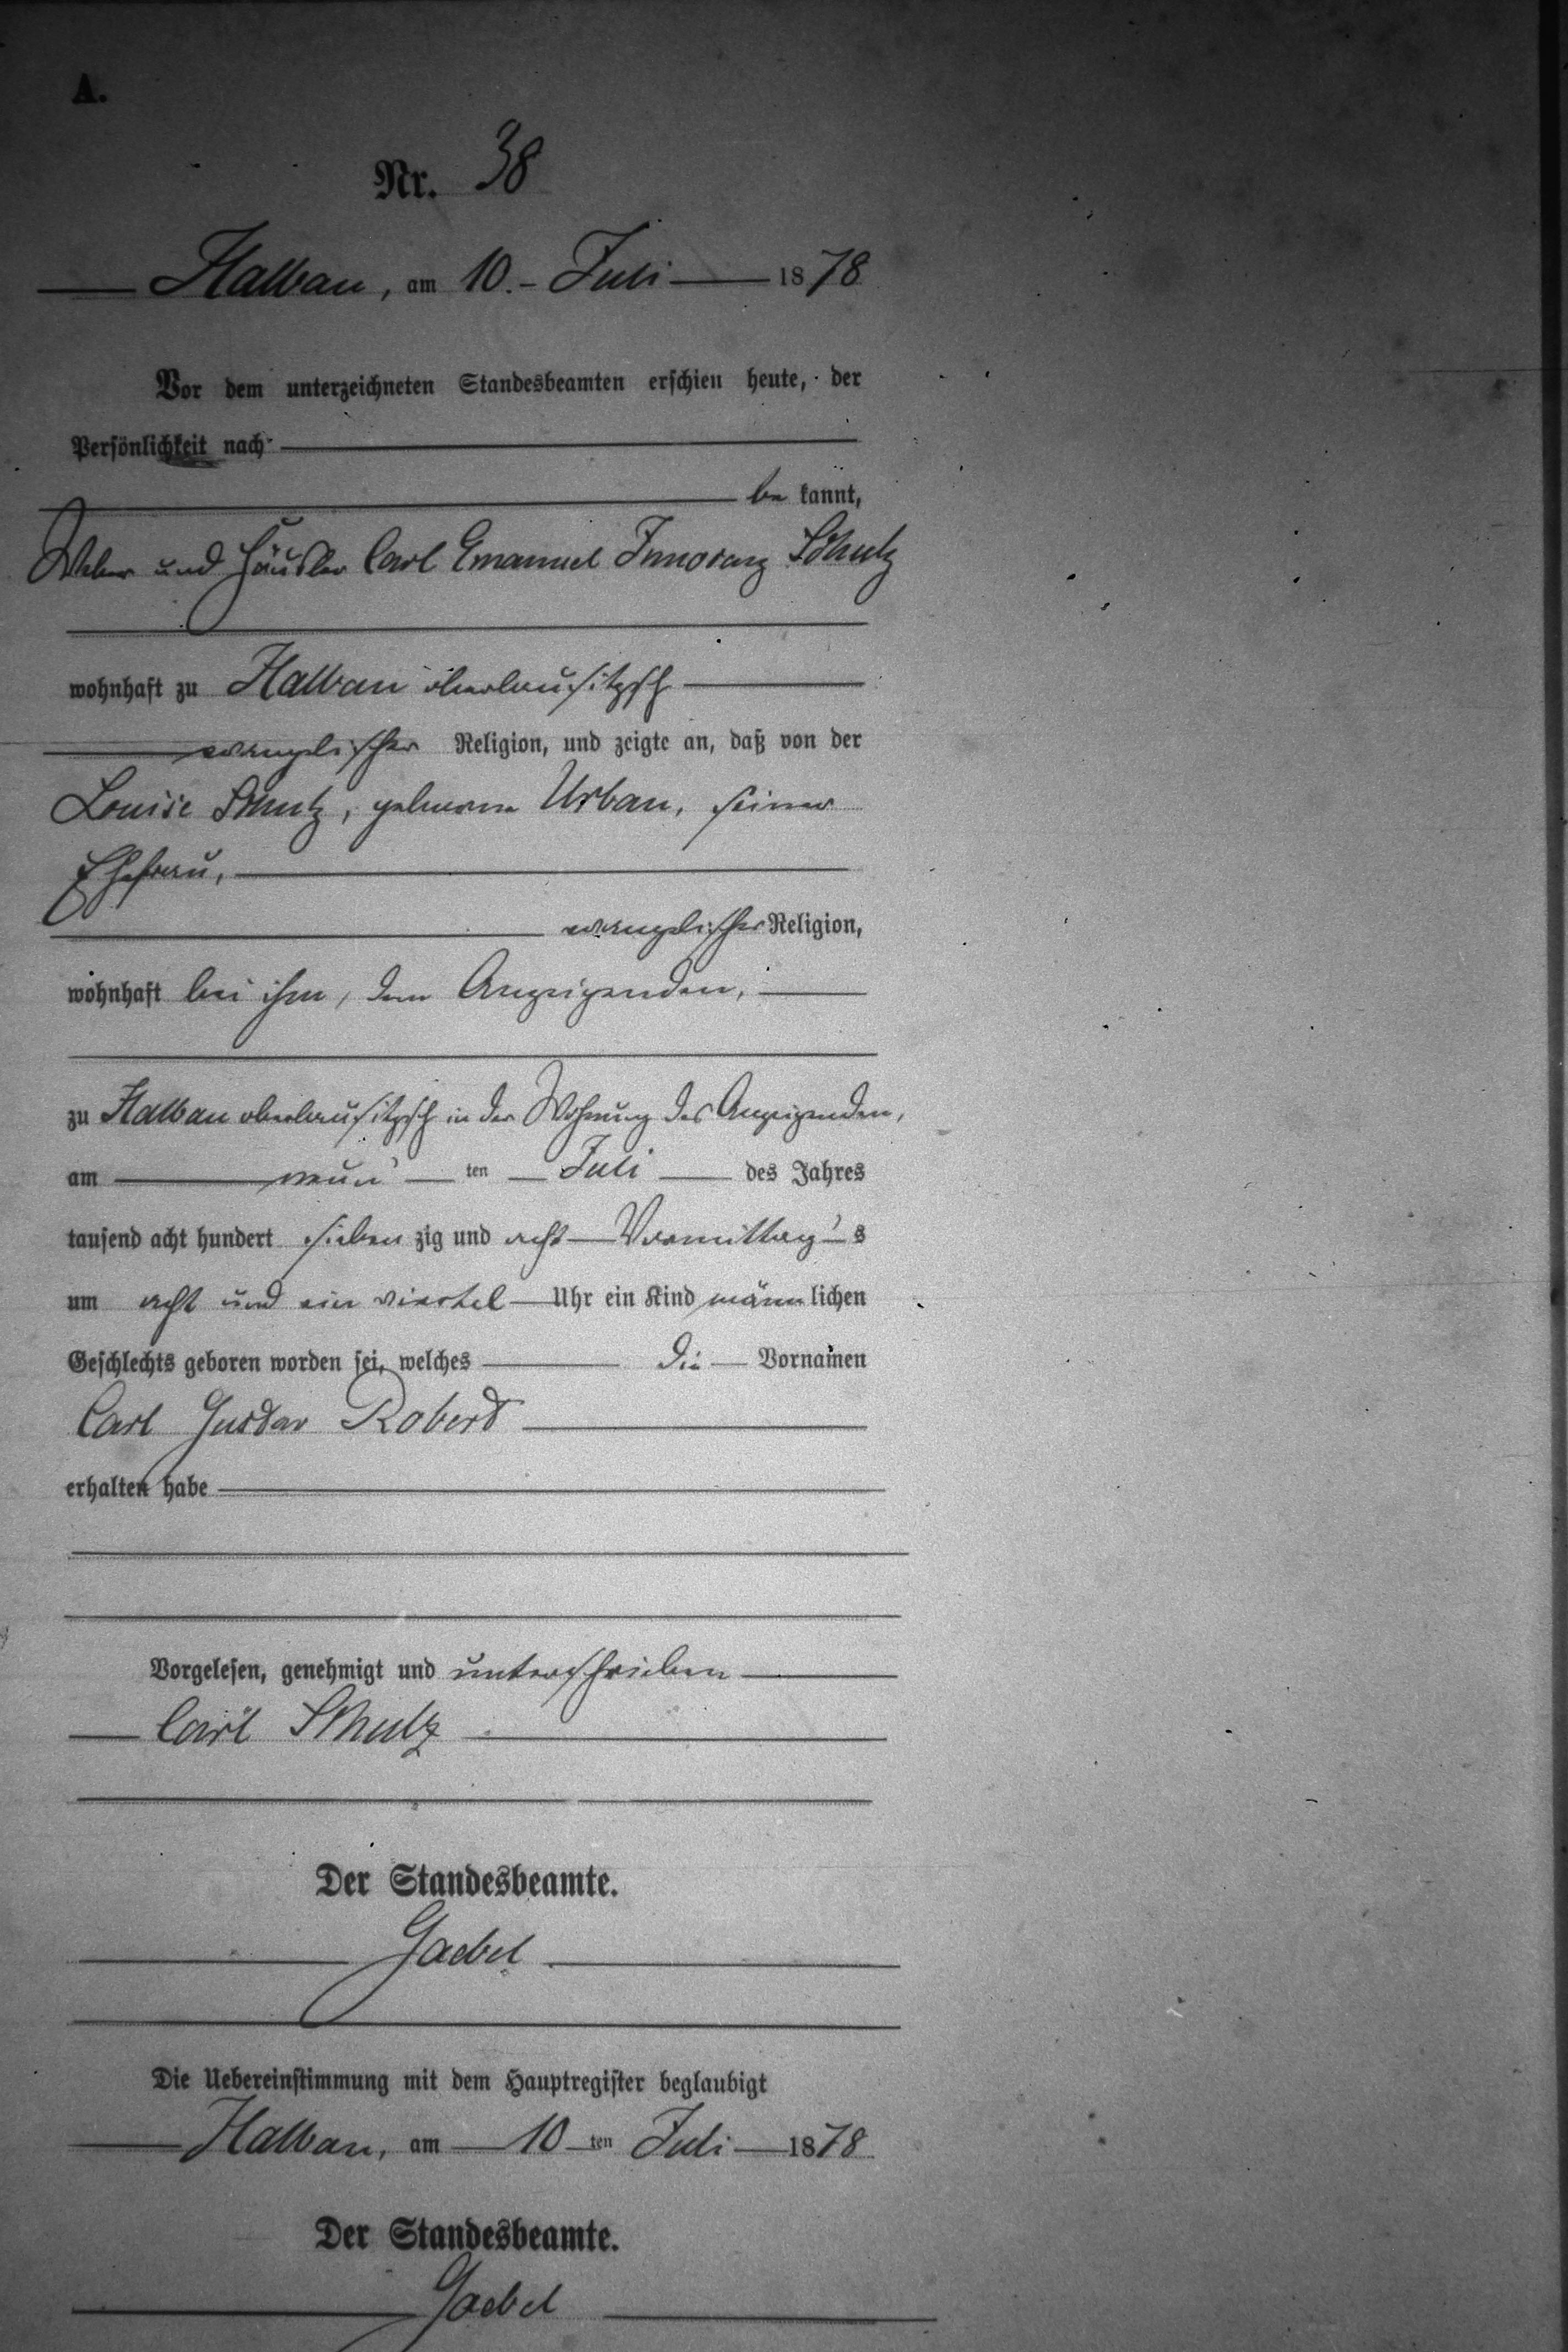 A.
Nr. 38
Halbau, am 10. Juli 1878
Vor dem unterzeichneten Standesbeamten erschien heute, der
Persönlichkeit nach
be kannt,
Weber und Häusler Carl Emanuel Schulz
wohnhaft zu Halbau oberlausitzsch
evangelischer Religion, und zeigte an, daß von der
Louise Schulz, geborene Urban, seiner
Ehefrau,
evangelischer Religion,
wohnhaft bei ihm, dem Anzeigenden,
zu Halbau oberlausitzsch in der Wohnung des Anzeigenden,
am neun ten Juli des Jahres
tausend acht hundert sieben zig und acht Vormittag's
um acht und ein viertel Uhr ein Kind männ lichen
Geschlechts geboren worden sei, welches die Vornamen
Carl Gustav Robert
erhalten habe
Vorgelesen, genehmigt und unterschrieben
Carl Schulz
Der Standesbeamte.
Gaebel
Die Uebereinstimmung mit dem Hauptregister beglaubigt
Halbau, am 10 ten Juli 1878
Der Standesbeamte.
Gaebel